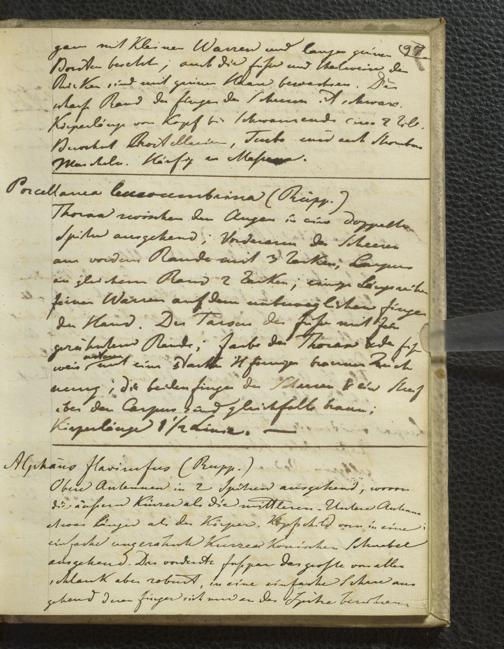 97
ganz mit kleinen Warzen und langen grünen
Borsten besetzt; auch die Füße und
Rücken sind mit grünen Haaren bewachsen. Der
scharfe Rand der Finger der Scheeren ist schwarz.
Körperlänge von Kopf bis Schwanzende circa 2 Zoll.
Bewohnt Turbo und auch Strombus
Muscheln. Häufig in
Porcellanea (Rüpp.)
Thorax zwischen den Augen in eine doppelte
Spitze ausgehend; Vorderarm der Scheeren
am vordern Rande mit 3 Zacken; Carpus
an gleichem Rand 2 Zacken; einige Längsreihen
feiner Warzen auf dem unbeweglichen Finger
der Hand. Der Tarsus der Füße mit
Rande; Farbe des Thorax und Füße
weis mit eine starke Hförmige braune Zeich
nung; die beiden Finger der Scheeren & ein Streif
über den Carpus sind gleichfalls braun;
Körperlänge 1 1/2 Linie. —
Alphäus flavirufus (Rüpp.)
Obere Antennen in 2 Spitzen ausgehend, wovon
die äußern kürzer als die mittleren. Untere Antenne
etwas länger als der Körper. Kopfschild vorn in eine
einfache ungezähnte kurze konischen Schnabel
ausgehend. Das vorderste Fußpaar das größte von allen
schlank aber robust, in eine einfache Scheere aus
gehend deren Finger sich nur an der Spitze berühren